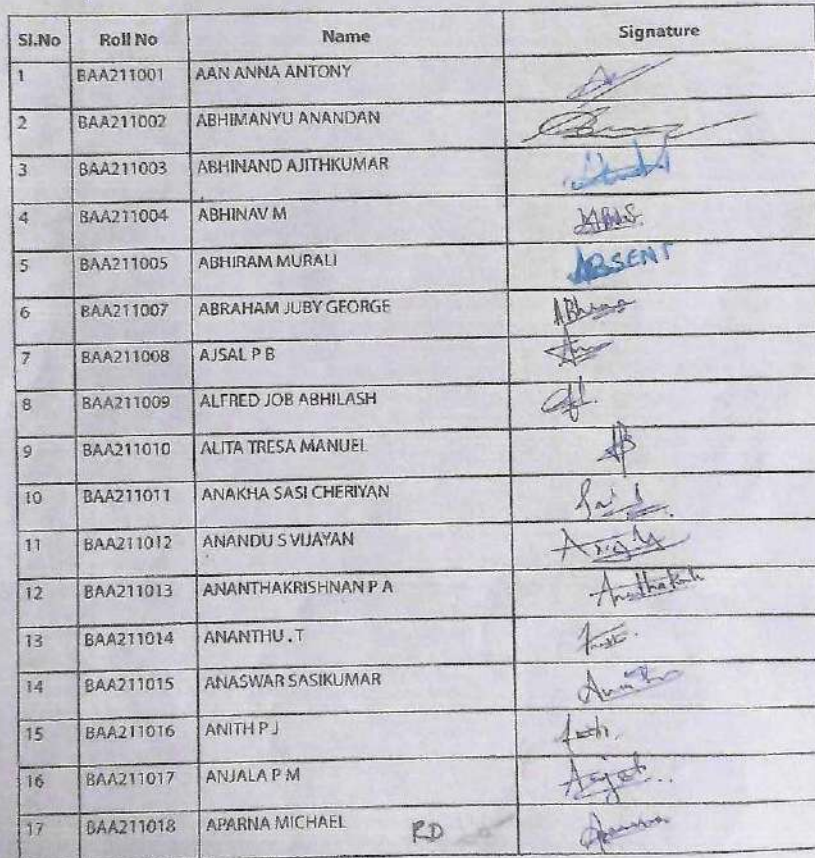 Sl.No Roll No Name Signature
1 BAA211001 AAN ANNA ANTONY
2 BAA211002 ABHIMANYU ANANDAN
3 BAA211003 ABHINAND AJITHKUMAR
4 BAA211004 ABHINAV M
5 BAA211005 ABHIRAM MURALI ABSENT
6 BAA211007 ABRAHAM JUBY GEORGE
7 BAA211008 AJSAL P B
8 BAA211009 ALFRED JOB ABHILASH
9 BAA211010 ALITA TRESA MANUEL
10 BAA211011 ANAKHA SASI CHERIYAN
11 BAA211012 ANANDU S VIJAYAN
12 BAA211013 ANANTHAKRISHNAN P A
13 BAA211014 ANANTHU . T
14 BAA211015 ANASWAR SASIKUMAR
15 BAA211016 ANITH P J
16 BAA211017 ANJALA P M
17 BAA211018 APARNA MICHAEL RD